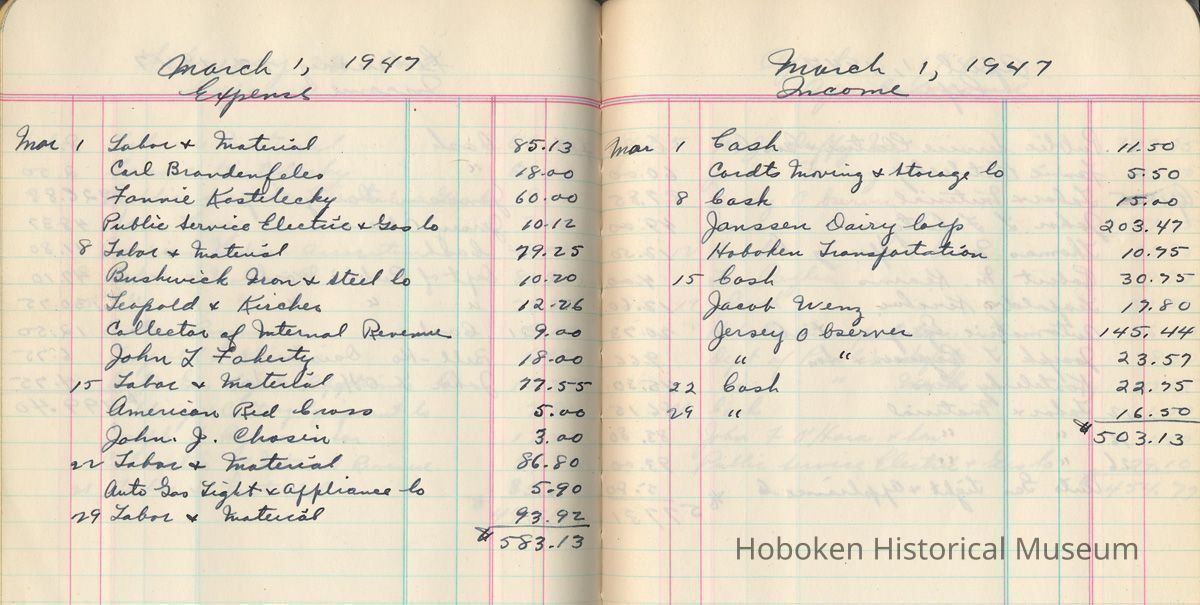 March 1, 1947
Expense
Mar 1 Labor & Material 85.13
Carl Brandenfeles 18.00
Fannie Kostelecky 60.00
Public Service Electric & Gas Co 10.12
8 Labor & Material 79.25
Bushwick Iron & Steel Co 10.20
Leopold & Kircher 12.26
Collector of Internal Revenue 9.00
John L Faherty 18.00
15 Labor & Material 77.55
American Red Cross 5.00
John. J. Chosin 3.00
22 Labor & Material 86.80
Auto Gas Light & Appliance Co 5.90
29 Labor & Material 93.92
$ 583.13
March 1, 1947
Income
Mar 1 Cash 11.50
Cordts Moving & Storage Co 5.50
8 Cash 15.00
Janssen Dairy Corp 203.47
Hoboken Transportation 10.75
15 Cash 30.75
Jacob Wenz 17.80
Jersey Observer 145.44
" " 23.57
22 Cash 22.75
29 " 16.50
$ 503.13
Hoboken Historical Museum